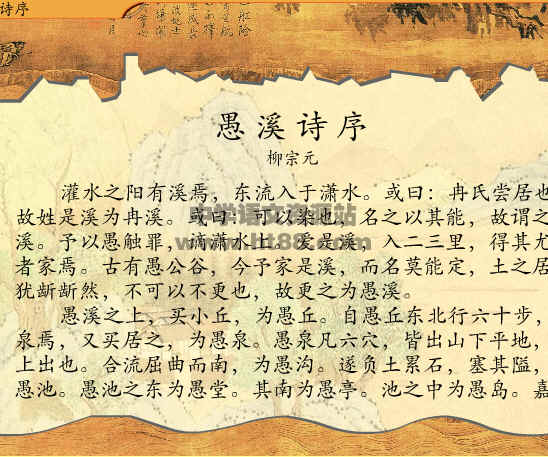 诗序
愚溪诗序
柳宗元
灌水之阳有溪焉，东流入于潇水。或曰：冉氏尝居也
故姓是溪为冉溪。或曰：可以染也，名之以其能，故谓之
溪。予以愚触罪，谪潇水上。爱是溪，入二三里，得其尤
者家焉。古有愚公谷，今予家是溪，而名莫能定，土之居
犹龂龂然，不可以不更也，故更之为愚溪。
愚溪之上，买小丘，为愚丘。自愚丘东北行六十步，
泉焉，又买居之，为愚泉。愚泉凡六穴，皆出山下平地，
上出也。合流屈曲而南，为愚沟。遂负土累石，塞其隘，
愚池。愚池之东为愚堂。其南为愚亭。池之中为愚岛。嘉
中学语文资源网站